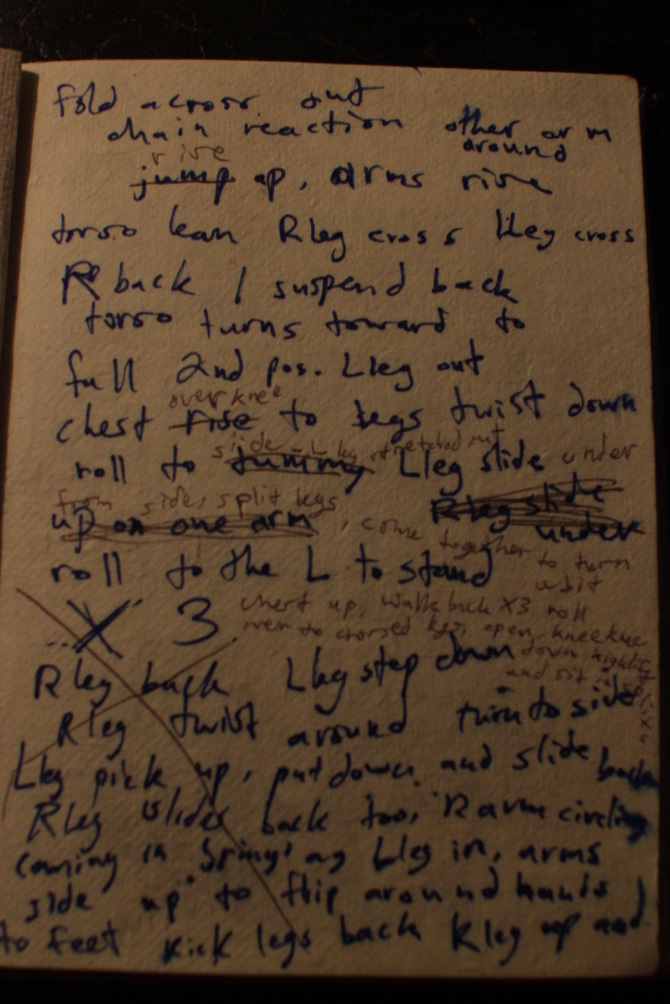 fold across out
chain reaction other arm
around
rise
jump up, arms rise
torso lean R leg cross L leg cross
R back / suspend back
torso turns toward to
full 2nd pos. L leg out
over knee
chest rise to legs twist down
side - L leg stretched out
roll to tummy L leg slide under
from side, split legs
up on one arm R leg slide
under
, come together to turn
a bit
roll to the L to stand
... X 3
chest up, walk back X3 roll
over to crossed legs, open, knee knee
down
and sit
R leg back L leg step down
R leg twist around turn to side
L leg pick up, put down and slide back
R leg slides back too, R arm circling
coming in bringing L leg in, arms
side up to flip around hands
to feet kick legs back R leg up and